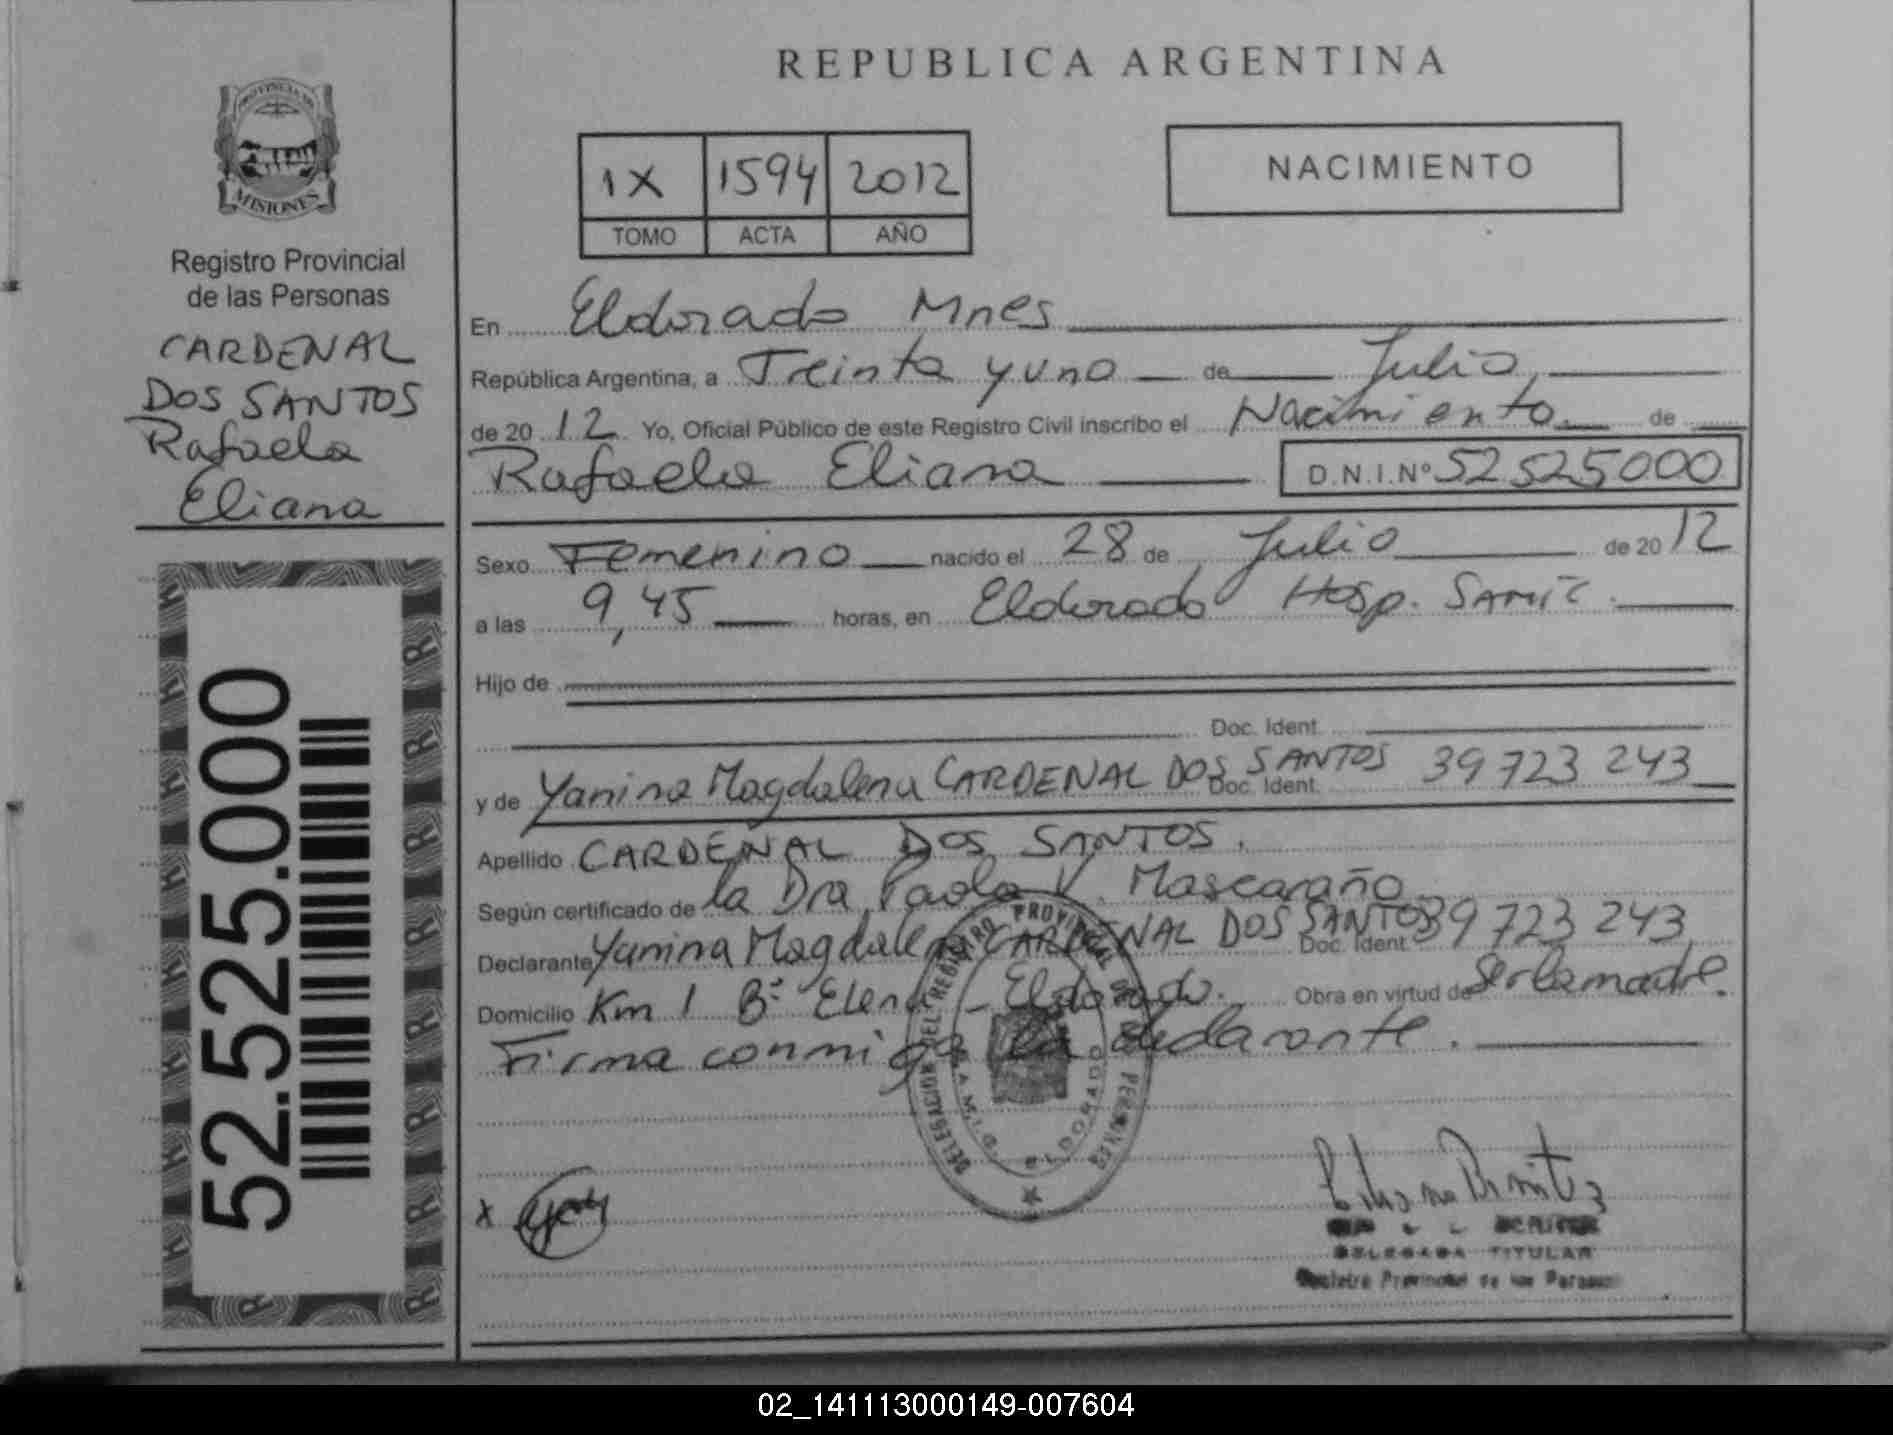 REPUBLICA ARGENTINA
PROVINCIA DE
MISIONES
Registro Provincial
de las Personas
CARDENAL
DOS SANTOS
Rafaela
Eliana
52.525.000
1X 1594 2012
TOMO ACTA AÑO
NACIMIENTO
En Eldorado Mnes
República Argentina, a Treinta y uno de Julio
de 20 12 Yo, Oficial Público de este Registro Civil inscribo el Nacimiento de
Rafaela Eliana D.N.I.Nº 52525000
Sexo Femenino nacido el 28 de Julio de 20 12
a las 9,45 horas, en Eldorado Hosp. Samic.
Hijo de
Doc. Ident.
y de Yanina Magdalena CARDENAL DOS SANTOS Doc. Ident. 39 723 243
Apellido CARDENAL DOS SANTOS.
Según certificado de la Dra Paola V. Mascaraño.
Declarante Yanina Magdalena CARDENAL DOS SANTOS Doc. Ident. 39 723 243
Domicilio Km 1 Bº Elena - Eldorado. Obra en virtud de Ser la madre.
Firma conmigo la declarante.
DELEGACION DEL REGISTRO PROVINCIAL DE PERSONAS
ELDORADO
x
DELEGADA TITULAR
Registro Provincial de las Personas
02_141113000149-007604